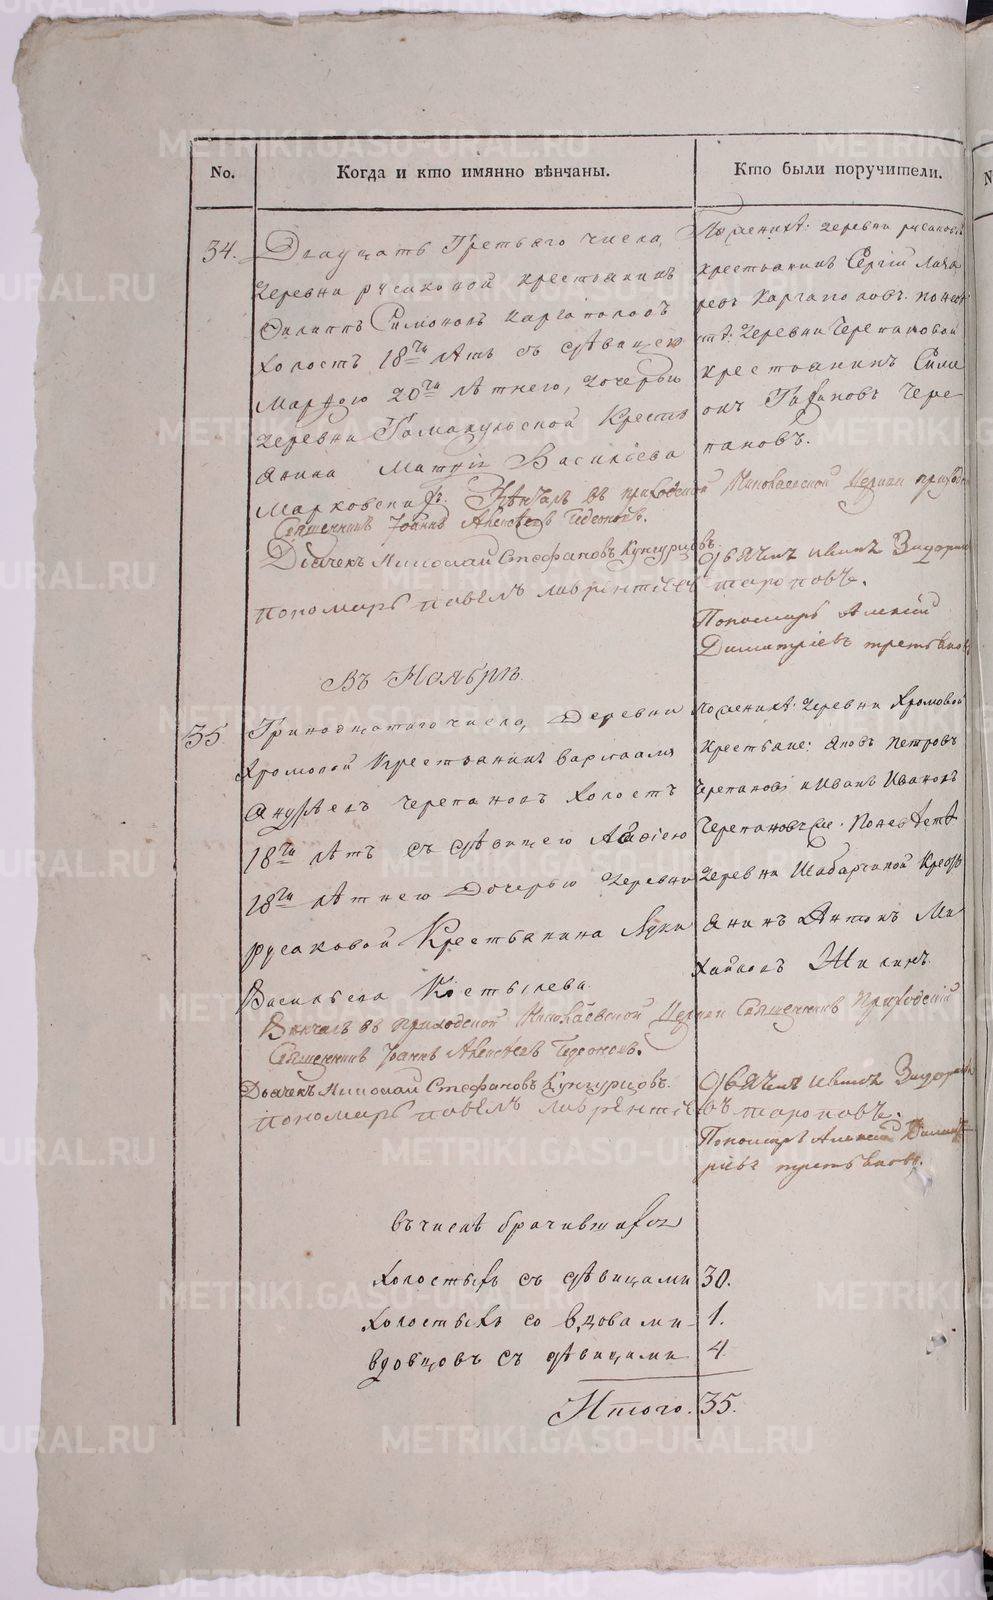 No.
Когда и кто имянно вѣнчаны.
Кто были поручители.
34.
Двадцать Третьяго числа,
деревни русаковой крестьянинъ
Филиппъ Симоновъ Каргаполовъ
холостъ 18ти лѣтъ съ дѣвицею
Марѳою 20ти лѣтнею, дочерью
деревни Гамакульской Кресть
янина Матвія Васильева
Марковскихъ. Вѣнчалъ въ приходской Николаевской Церкви приход
Священникъ Іоаннъ Алексѣевъ
Дьячекъ Николай Стефановъ Кунгурцовъ.
пономарь павелъ лаврентіевъ тороповъ.
По женихѣ: деревни русаковой
крестьянинъ Сергій Лаза
ревъ Каргаполовъ. по невѣ
стѣ: деревни Черепановой
крестьянинъ Сими
онъ Чере
пановъ.
Дьячекъ Иванъ
Пономарь Алексій
Димитріевъ третьяковъ
Въ Ноябрѣ.
35
Тринадцатаго числа, Деревни
Хромовой Крестьянинъ Варлаамъ
Черепановъ Холостъ
18ти лѣтъ съ дѣвицею
18ти лѣтнею Дочерью деревни
русаковой Крестьянина Луки
Васильева Костылева.
Вѣнчалъ въ приходской Николаевской Церкви Священникъ Приходскій
Священникъ Іоаннъ Алексѣевъ
Дьячекъ Николай Стефановъ Кунгурцовъ.
пономарь павелъ лаврентіевъ тороповъ.
По женихѣ: деревни Хромовой
Крестьяне: Яковъ Петровъ
Черепановъ и Иванъ Ивановъ
Черепановъ же. По невѣстѣ
деревни Шабарчиной Кресть
янинъ Антонъ Ми
хайловъ Жилинъ.
Дьячекъ Иванъ
Пономарь Алексій Димит
ріевъ третьяковъ.
Въ числѣ брачившихся
холостыхъ съ дѣвицами 30.
холостыхъ со вдовами 1.
вдовцовъ съ дѣвицами 4
Итого. 35.
METRIKI.GASO-URAL.RU